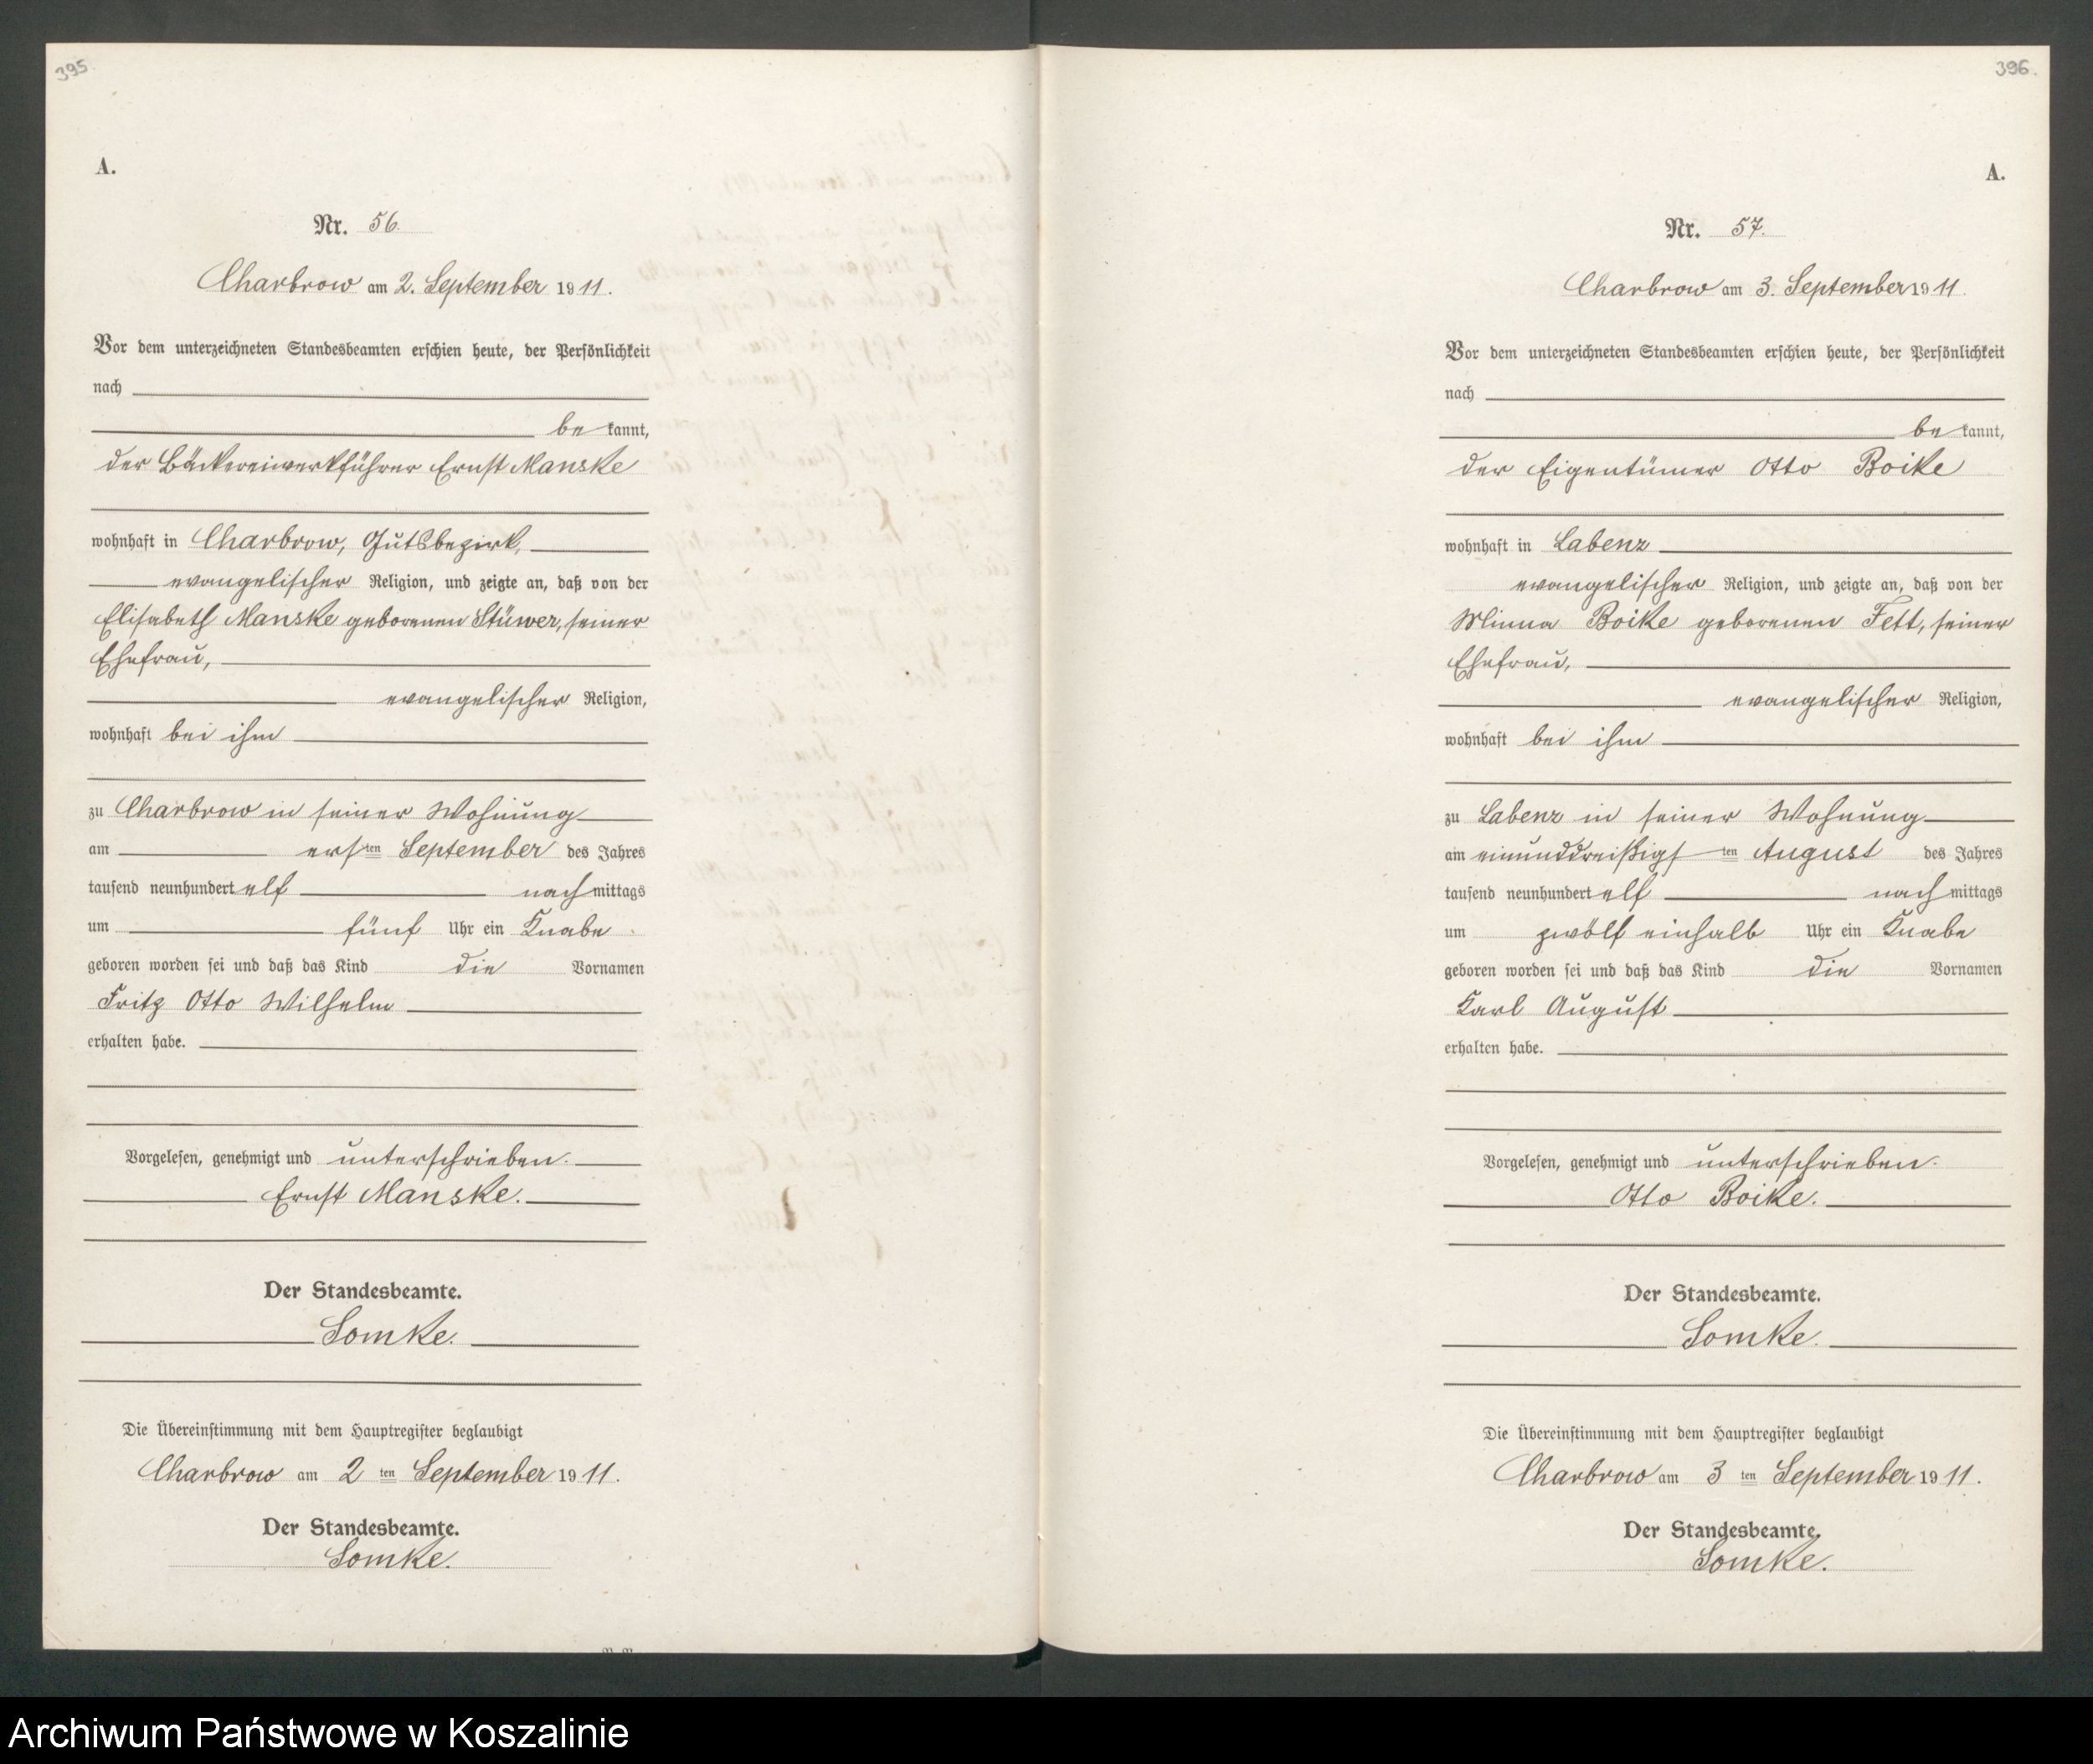 395.
A.
Nr. 56.
Charbrow am 2. September 1911.
Vor dem unterzeichneten Standesbeamten erschien heute, der Persönlichkeit
nach
be kannt,
der Bäckereiwerkführer Ernst Manske
wohnhaft in Charbrow, Gutsbezirk,
evangelischer Religion, und zeigte an, daß von der
Elisabeth Manske geborenen Stüwer, seiner
Ehefrau,
evangelischer Religion,
wohnhaft bei ihm
zu Charbrow in seiner Wohnung
am ersten September des Jahres
tausend neunhundert elf nachmittags
um fünf Uhr ein Knabe
geboren worden sei und daß das Kind die Vornamen
Fritz Otto Wilhelm
erhalten habe.
Vorgelesen, genehmigt und unterschrieben.
Ernst Manske.
Der Standesbeamte.
Somke.
Die Übereinstimmung mit dem Hauptregister beglaubigt
Charbrow am 2 ten September 1911.
Der Standesbeamte.
Somke.
396.
A.
Nr. 57.
Charbrow am 3. September 1911.
Vor dem unterzeichneten Standesbeamten erschien heute, der Persönlichkeit
nach
be kannt,
der Eigentümer Otto Boike
wohnhaft in Labenz
evangelischer Religion, und zeigte an, daß von der
Minna Boike geborenen Fett, seiner
Ehefrau,
evangelischer Religion,
wohnhaft bei ihm
zu Labenz in seiner Wohnung
am einunddreißigsten August des Jahres
tausend neunhundert elf nachmittags
um zwölf einhalb Uhr ein Knabe
geboren worden sei und daß das Kind die Vornamen
Karl August
erhalten habe.
Vorgelesen, genehmigt und unterschrieben.
Otto Boike.
Der Standesbeamte.
Somke.
Die Übereinstimmung mit dem Hauptregister beglaubigt
Charbrow am 3 ten September 1911.
Der Standesbeamte.
Somke.
Archiwum Państwowe w Koszalinie